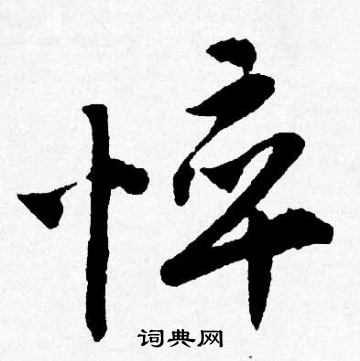 悴
词典网